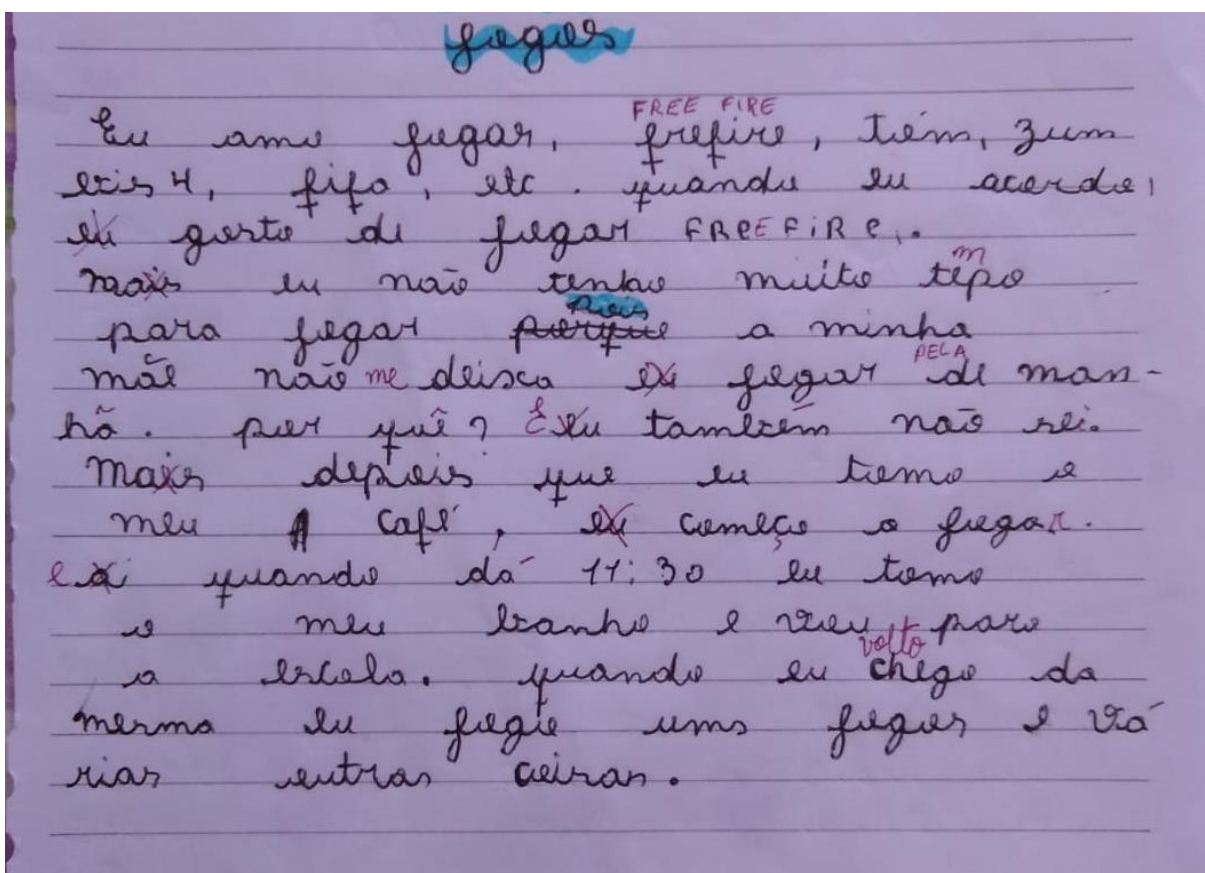 jogos
FREE FIRE
Eu amo jogar, frefire, tem, zum
bis 4, fifa, etc. quando eu acordo,
eu gosto de jogar FREEFIRE.
mais eu não tenho muito tempo
pois
para jogar porque a minha
PELA
mãe não me deixa eu jogar de man-
hã. por quê? E eu também não sei.
Mais depois que eu tomo o
meu café, eu começo a jogar.
e quando dá 11:30 eu tomo
o meu banho e vou para
volto
a escola. quando eu chego da
mesma eu jogo uns jogos e vá
rias outras coisas.